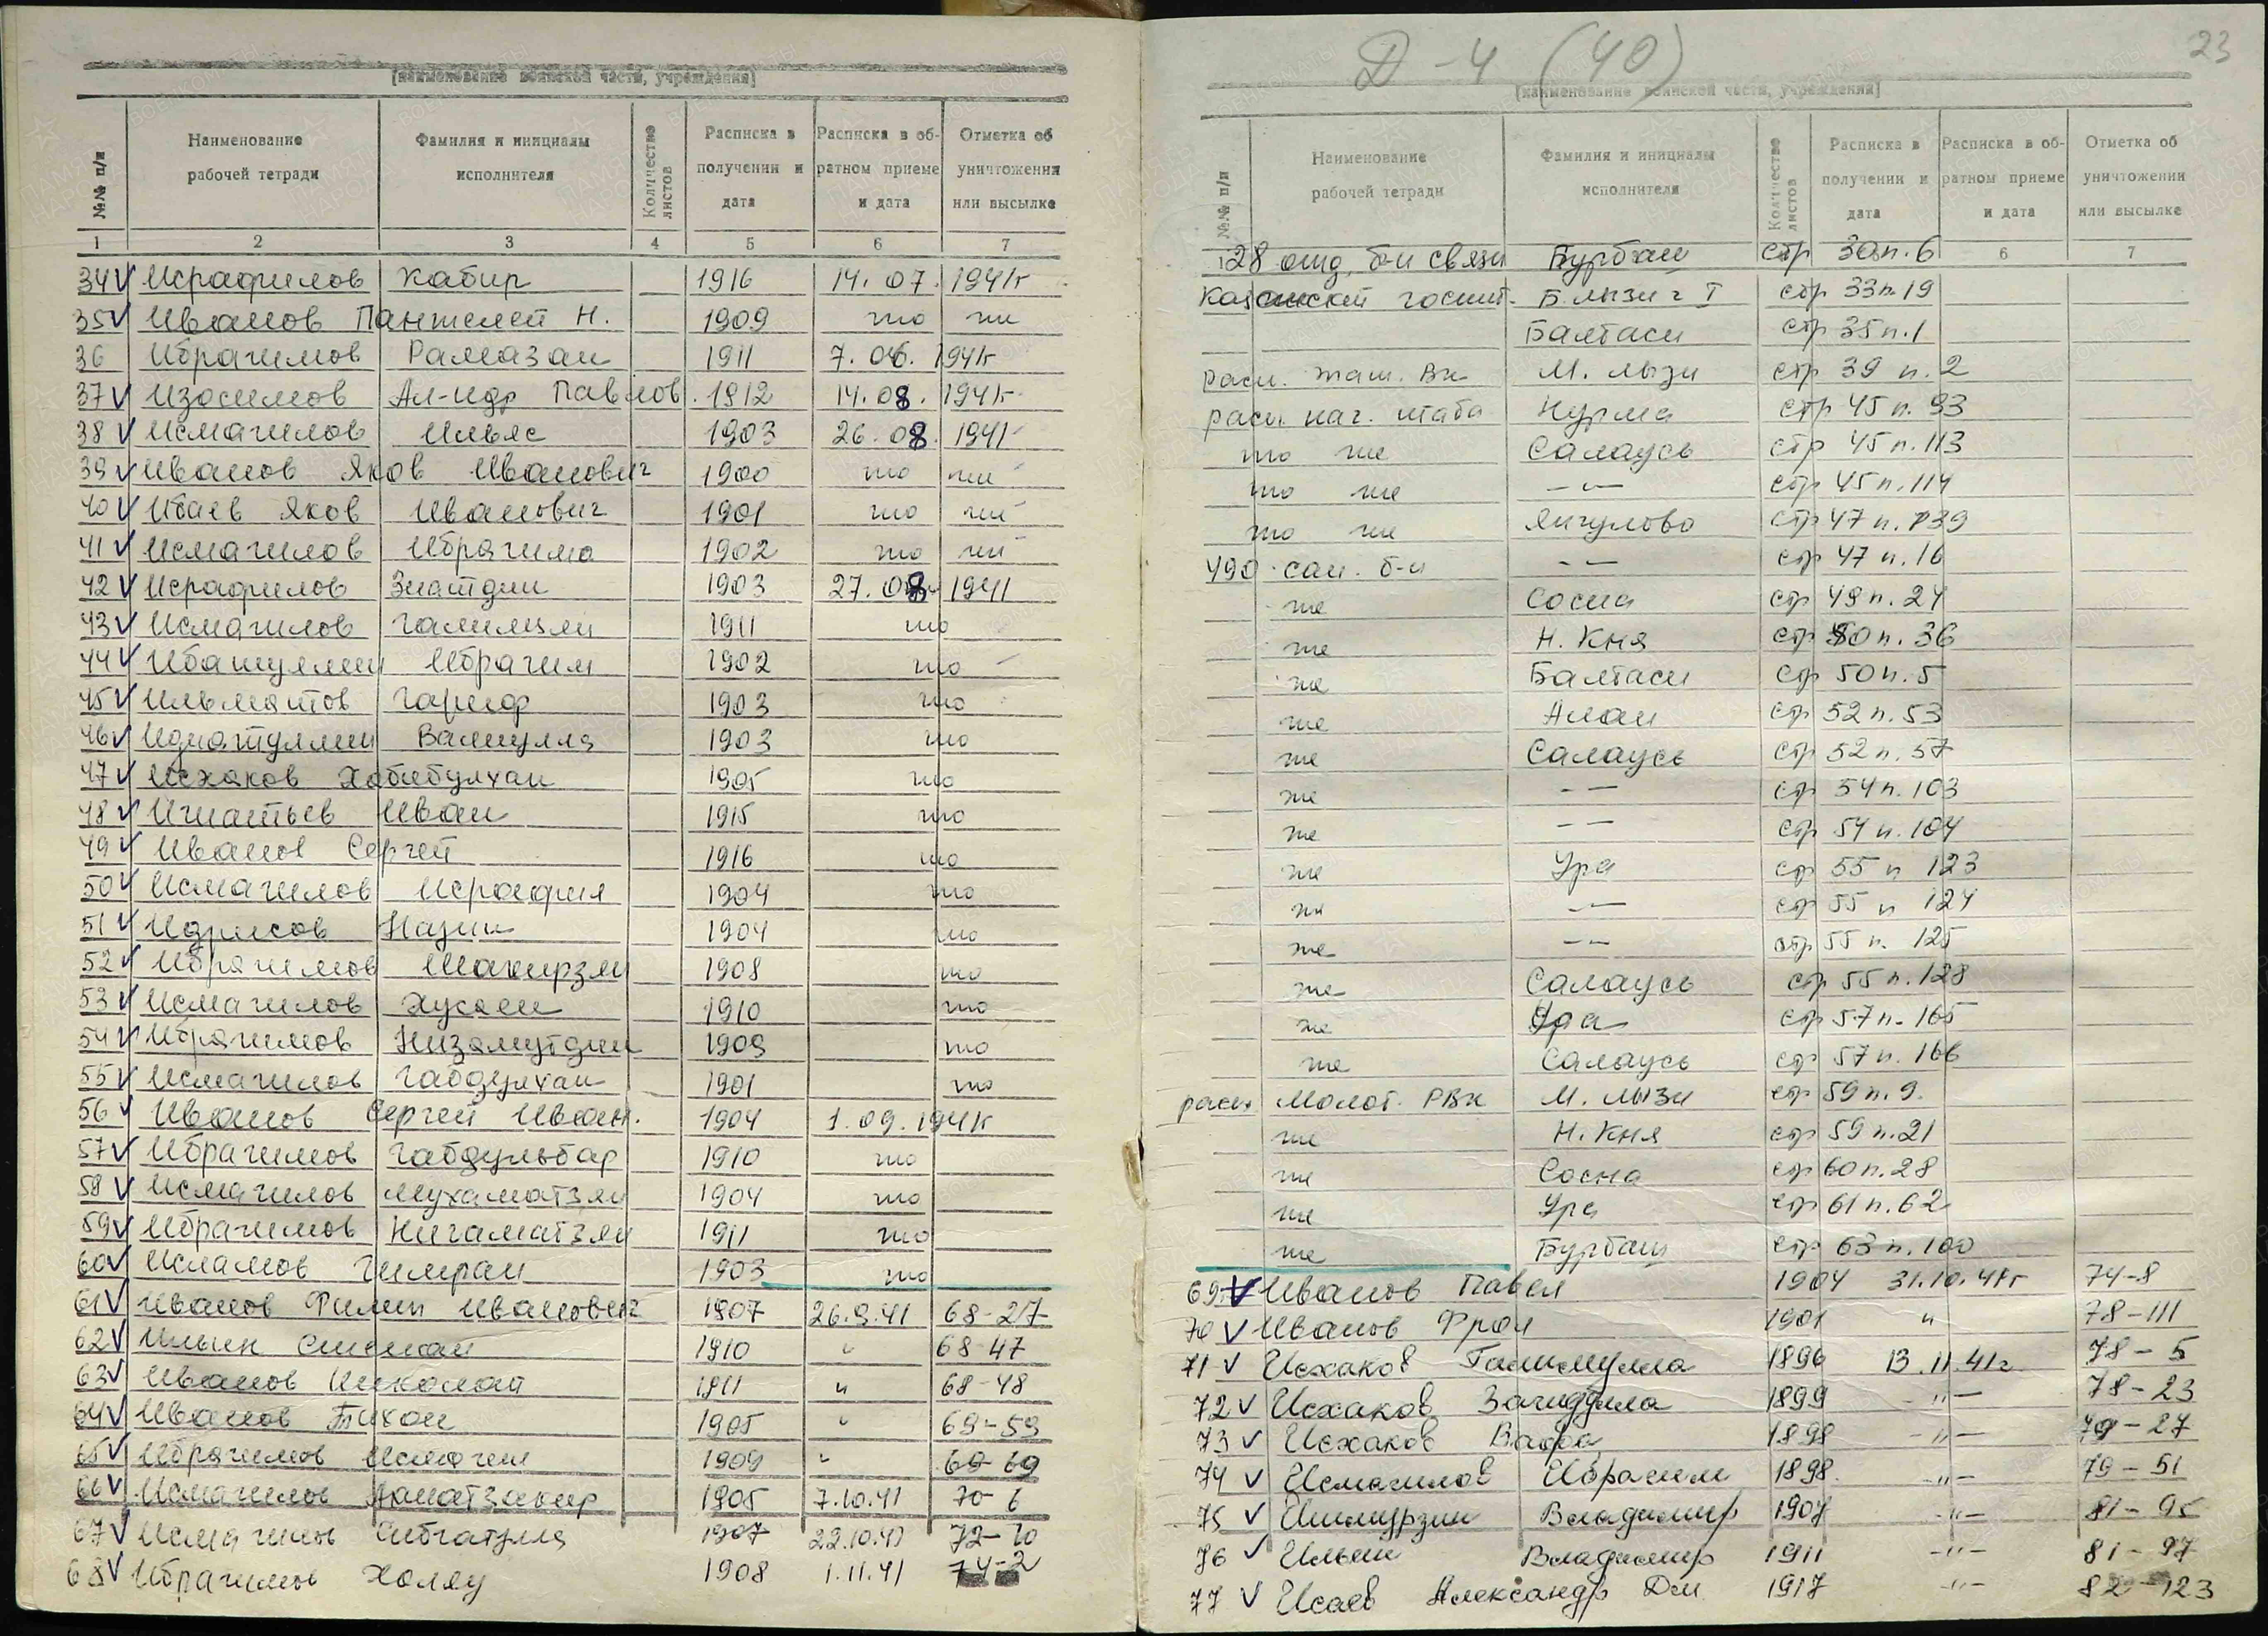 [наименование воинской части, учреждения]
№№ п/п
Наименование рабочей тетради
Фамилия и инициалы исполнителя
Количество листов
Расписка в получении и дата
Расписка в обратном приеме и дата
Отметка об уничтожении или высылке
1 2 3 4 5 6 7
34 Исрафилов Хабир 1916 14.07. 1941г
35 Иванов Пантелей Н. 1909 то же
36 Ибрагимов Рамазан 1911 7.06. 1941г
37 Изосимов Ал-ндр Павлов. 1912 14.08. 1941г
38 Исмагилов Ильяс 1903 26.08. 1941
39 Иванов Яков Иванович 1900 то же
40 Ибаев Яков Иванович 1901 то же
41 Исмагилов Ибрагим 1902 то же
42 Исрафилов Зиатдин 1903 27.08. 1941
43 Исмагилов Галимзян 1911 то
44 Ибатуллин Ибрагим 1902 то
45 Ильматов Гариф 1903 то
46 Идиатуллин Валиулла 1903 то
47 Исхаков Хабибулхан 1905 то
48 Игнатьев Иван 1915 то
49 Иванов Сергей 1916 то
50 Исмагилов Исрафил 1904 то
51 Идрисов Назип 1904 то
52 Ибрагимов Шакирзян 1908 то
53 Исмагилов Хусаен 1910 то
54 Ибрагимов Низамутдин 1909 то
55 Исмагилов Габдулхан 1901 то
56 Иванов Сергей Иван. 1904 1.09.1941г
57 Ибрагимов Габдульбар 1910 то
58 Исмагилов Мухаматзян 1904 то
59 Ибрагимов Нигаматзян 1911 то
60 Исламов Гимран 1903 то
61 Иванов Филип Иванович 1907 26.9.41 68-27
62 Ильин Степан 1910 " 68-47
63 Иванов Николай 1911 " 68-48
64 Иванов Тихон 1905 " 69-59
65 Ибрагимов Исмагил 1909 " 69-69
66 Исмагилов 1905 7.10.41 70-6
67 Исмагилов Сибгатулла 1907 22.10.41 72-10
68 Ибрагимов 1908 1.11.41 74-2
Д-4 (40)
23
[наименование воинской части, учреждения]
№№ п/п
Наименование рабочей тетради
Фамилия и инициалы исполнителя
Количество листов
Расписка в получении и дата
Расписка в обратном приеме и дата
Отметка об уничтожении или высылке
6 7
128 отд. б-н связи Бурбаш стр 30п.6
Казанский госпит. Б.Лызи г I стр 33п.19
Балтаси стр 35п.1
расп. таш. Вк М. Лызи стр 39 п.2
расп. нач. штаба Нурма стр 45 п.93
то же Салаусь стр 45п.113
то же –"– стр 45п.114
то же Янгулово стр 47п.139
490 сан. б-н –"– стр 47 п.16
же Сосна стр 49п.24
же Н. Кня стр 50п.36
же Балтаси стр 50п.5
же Алан стр 52п.53
же Салаусь стр 52п.57
же –"– стр 54п.103
же –"– стр 54п.104
же Ура стр 55 п 123
же –"– стр 55 п 124
же –"– стр 55 п. 125
же Салаусь стр 55п.128
же Ура стр 57п.165
же Салаусь стр 57п.166
расп Молот. РВк М. Лызи стр 59п.9.
же Н. Кня стр 59п.21
же Сосна стр 60п.28
же Ура стр 61п.62
же Бурбаш стр 63п.100
69. Иванов Павел 1904 31.10.41г 74-8
70 Иванов Фрол 1901 " 78-111
71 Исхаков Галимулла 1896 13.11.41г 78-5
72 Исхаков Загидулла 1899 –"– 78-23
73 Исхаков Вафа 1898 –"– 79-27
74 Исмагилов Ибрагим 1898 –"– 79-51
75 Ишмурзин Владимир 1907 –"– 81-95
76 Ильин Владимир 1911 –"– 81-97
77 Исаев Александр Дм 1917 –"– 82-123